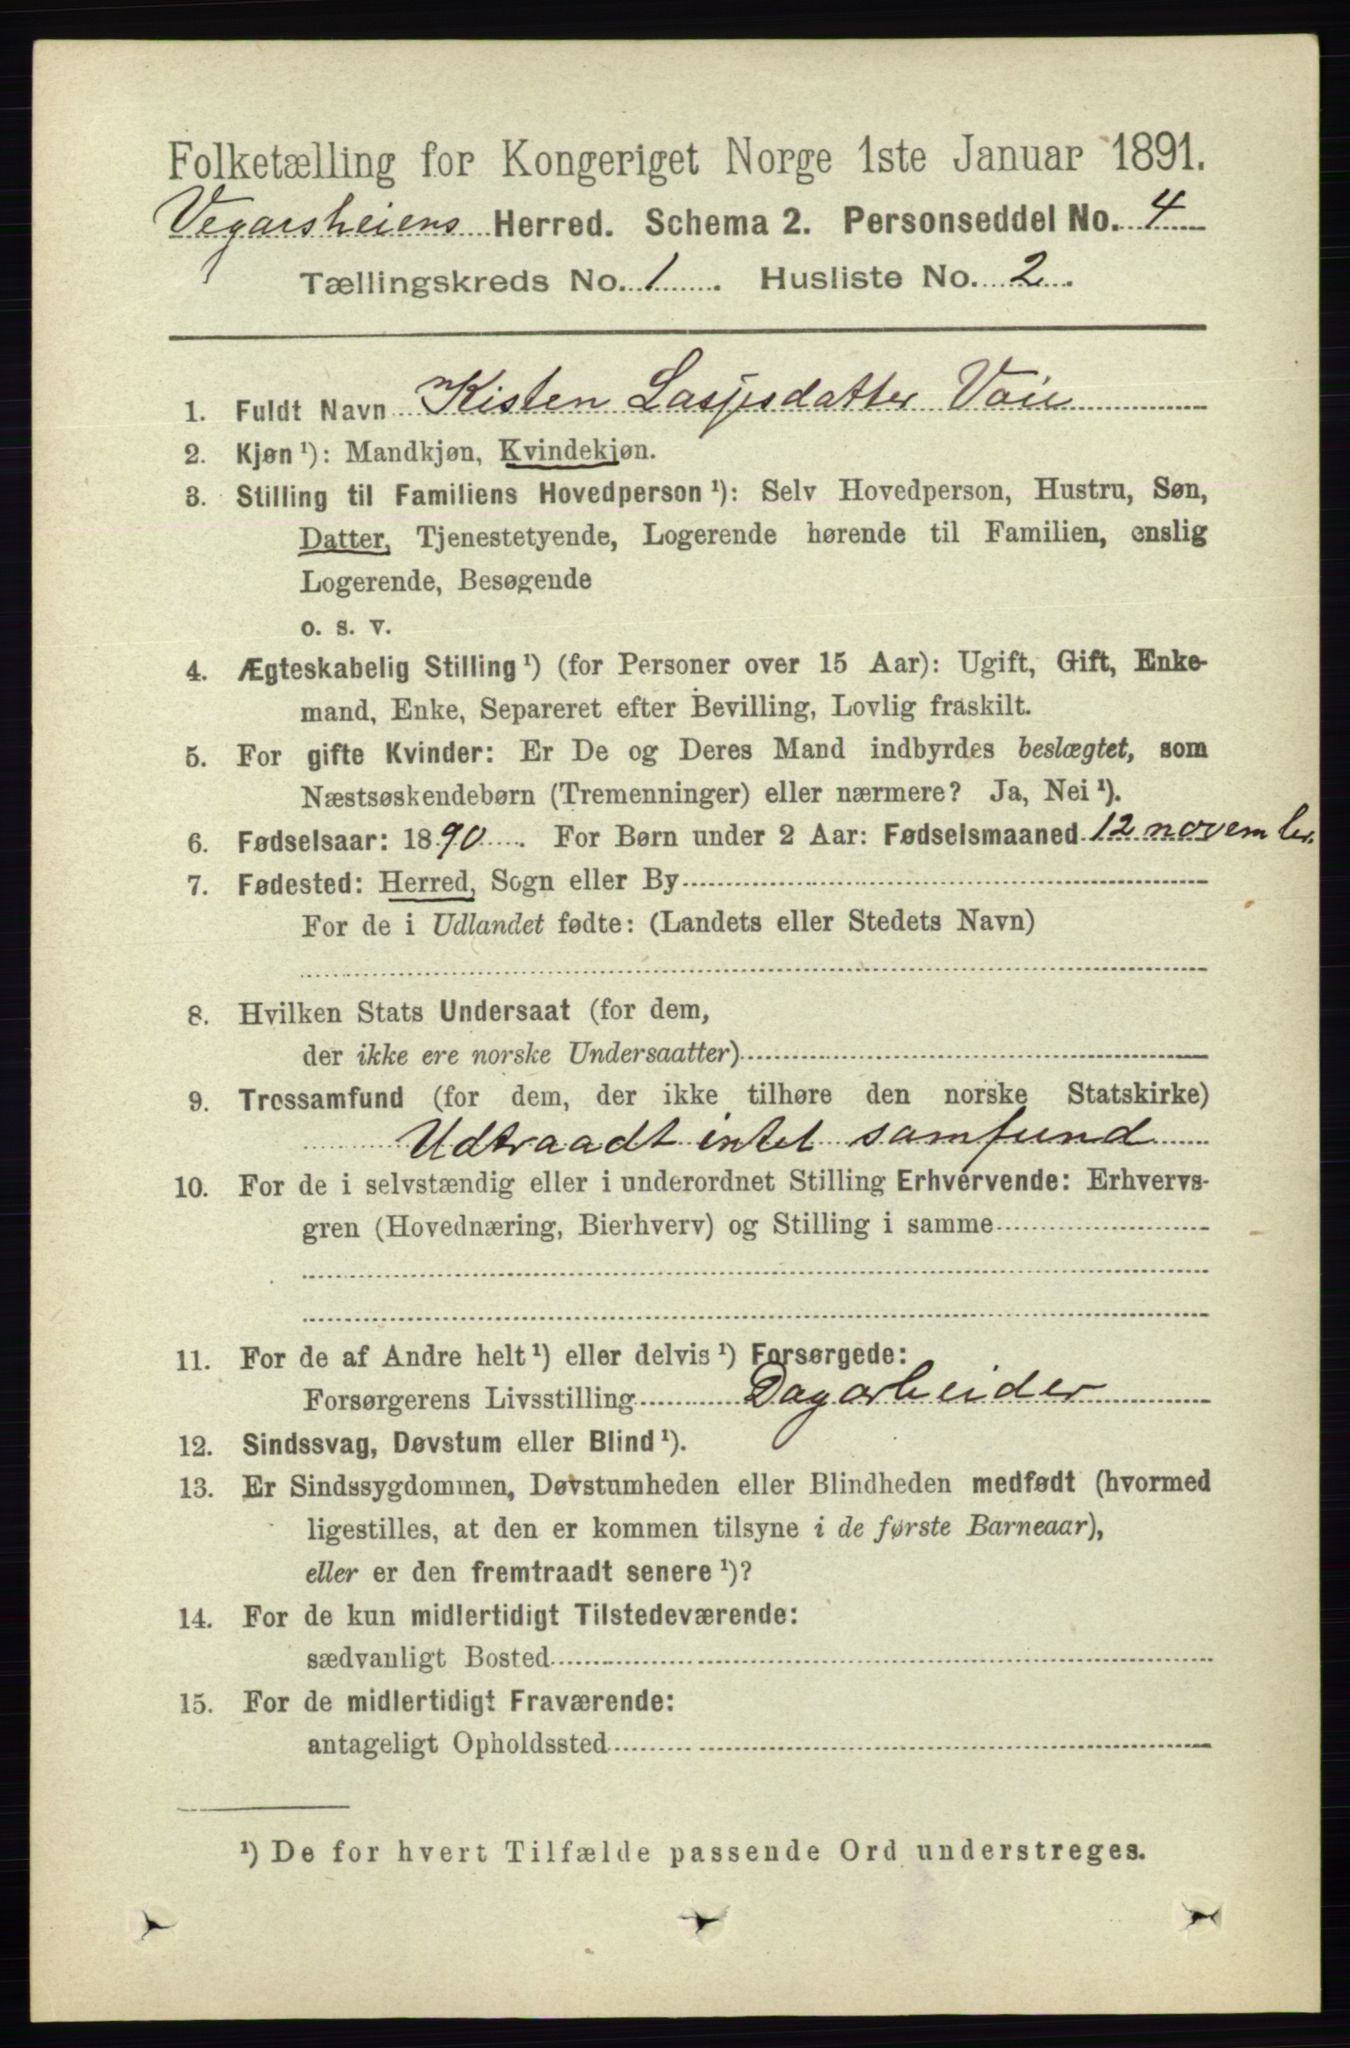 Folketælling for Kongeriget Norge 1ste Januar 1891.
Vegarsheiens Herred. Schema 2. Personseddel No. 4
Tællingskreds No. 1. Husliste No. 2.
1. Fuldt Navn Kisten Lasjesdatter Voie
2. Kjøn ¹): Mandkjøn, Kvindekjøn.
3. Stilling til Familiens Hovedperson ¹): Selv Hovedperson, Hustru, Søn,
Datter, Tjenestetyende, Logerende hørende til Familien, enslig
Logerende, Besøgende
o. s. v.
4. Ægteskabelig Stilling ¹) (for Personer over 15 Aar): Ugift, Gift, Enke-
mand, Enke, Separeret efter Bevilling, Lovlig fraskilt.
5. For gifte Kvinder: Er De og Deres Mand indbyrdes beslægtet, som
Næstsøskendebørn (Tremenninger) eller nærmere? Ja, Nei ¹).
6. Fødselsaar: 1890. For Børn under 2 Aar: Fødselsmaaned 12 november.
7. Fødested: Herred, Sogn eller By
For de i Udlandet fødte: (Landets eller Stedets Navn)
8. Hvilken Stats Undersaat (for dem,
der ikke ere norske Undersaatter)
9. Trossamfund (for dem, der ikke tilhøre den norske Statskirke)
Udtraadt intet samfund
10. For de i selvstændig eller i underordnet Stilling Erhvervende: Erhvervs-
gren (Hovednæring, Bierhverv) og Stilling i samme
11. For de af Andre helt ¹) eller delvis ¹) Forsørgede:
Forsørgerens Livsstilling Dagarbeider
12. Sindssvag, Døvstum eller Blind ¹).
13. Er Sindssygdommen, Døvstumheden eller Blindheden medfødt (hvormed
ligestilles, at den er kommen tilsyne i de første Barneaar),
eller er den fremtraadt senere ¹)?
14. For de kun midlertidigt Tilstedeværende:
sædvanligt Bosted
15. For de midlertidigt Fraværende:
antageligt Opholdssted
¹) De for hvert Tilfælde passende Ord understreges.